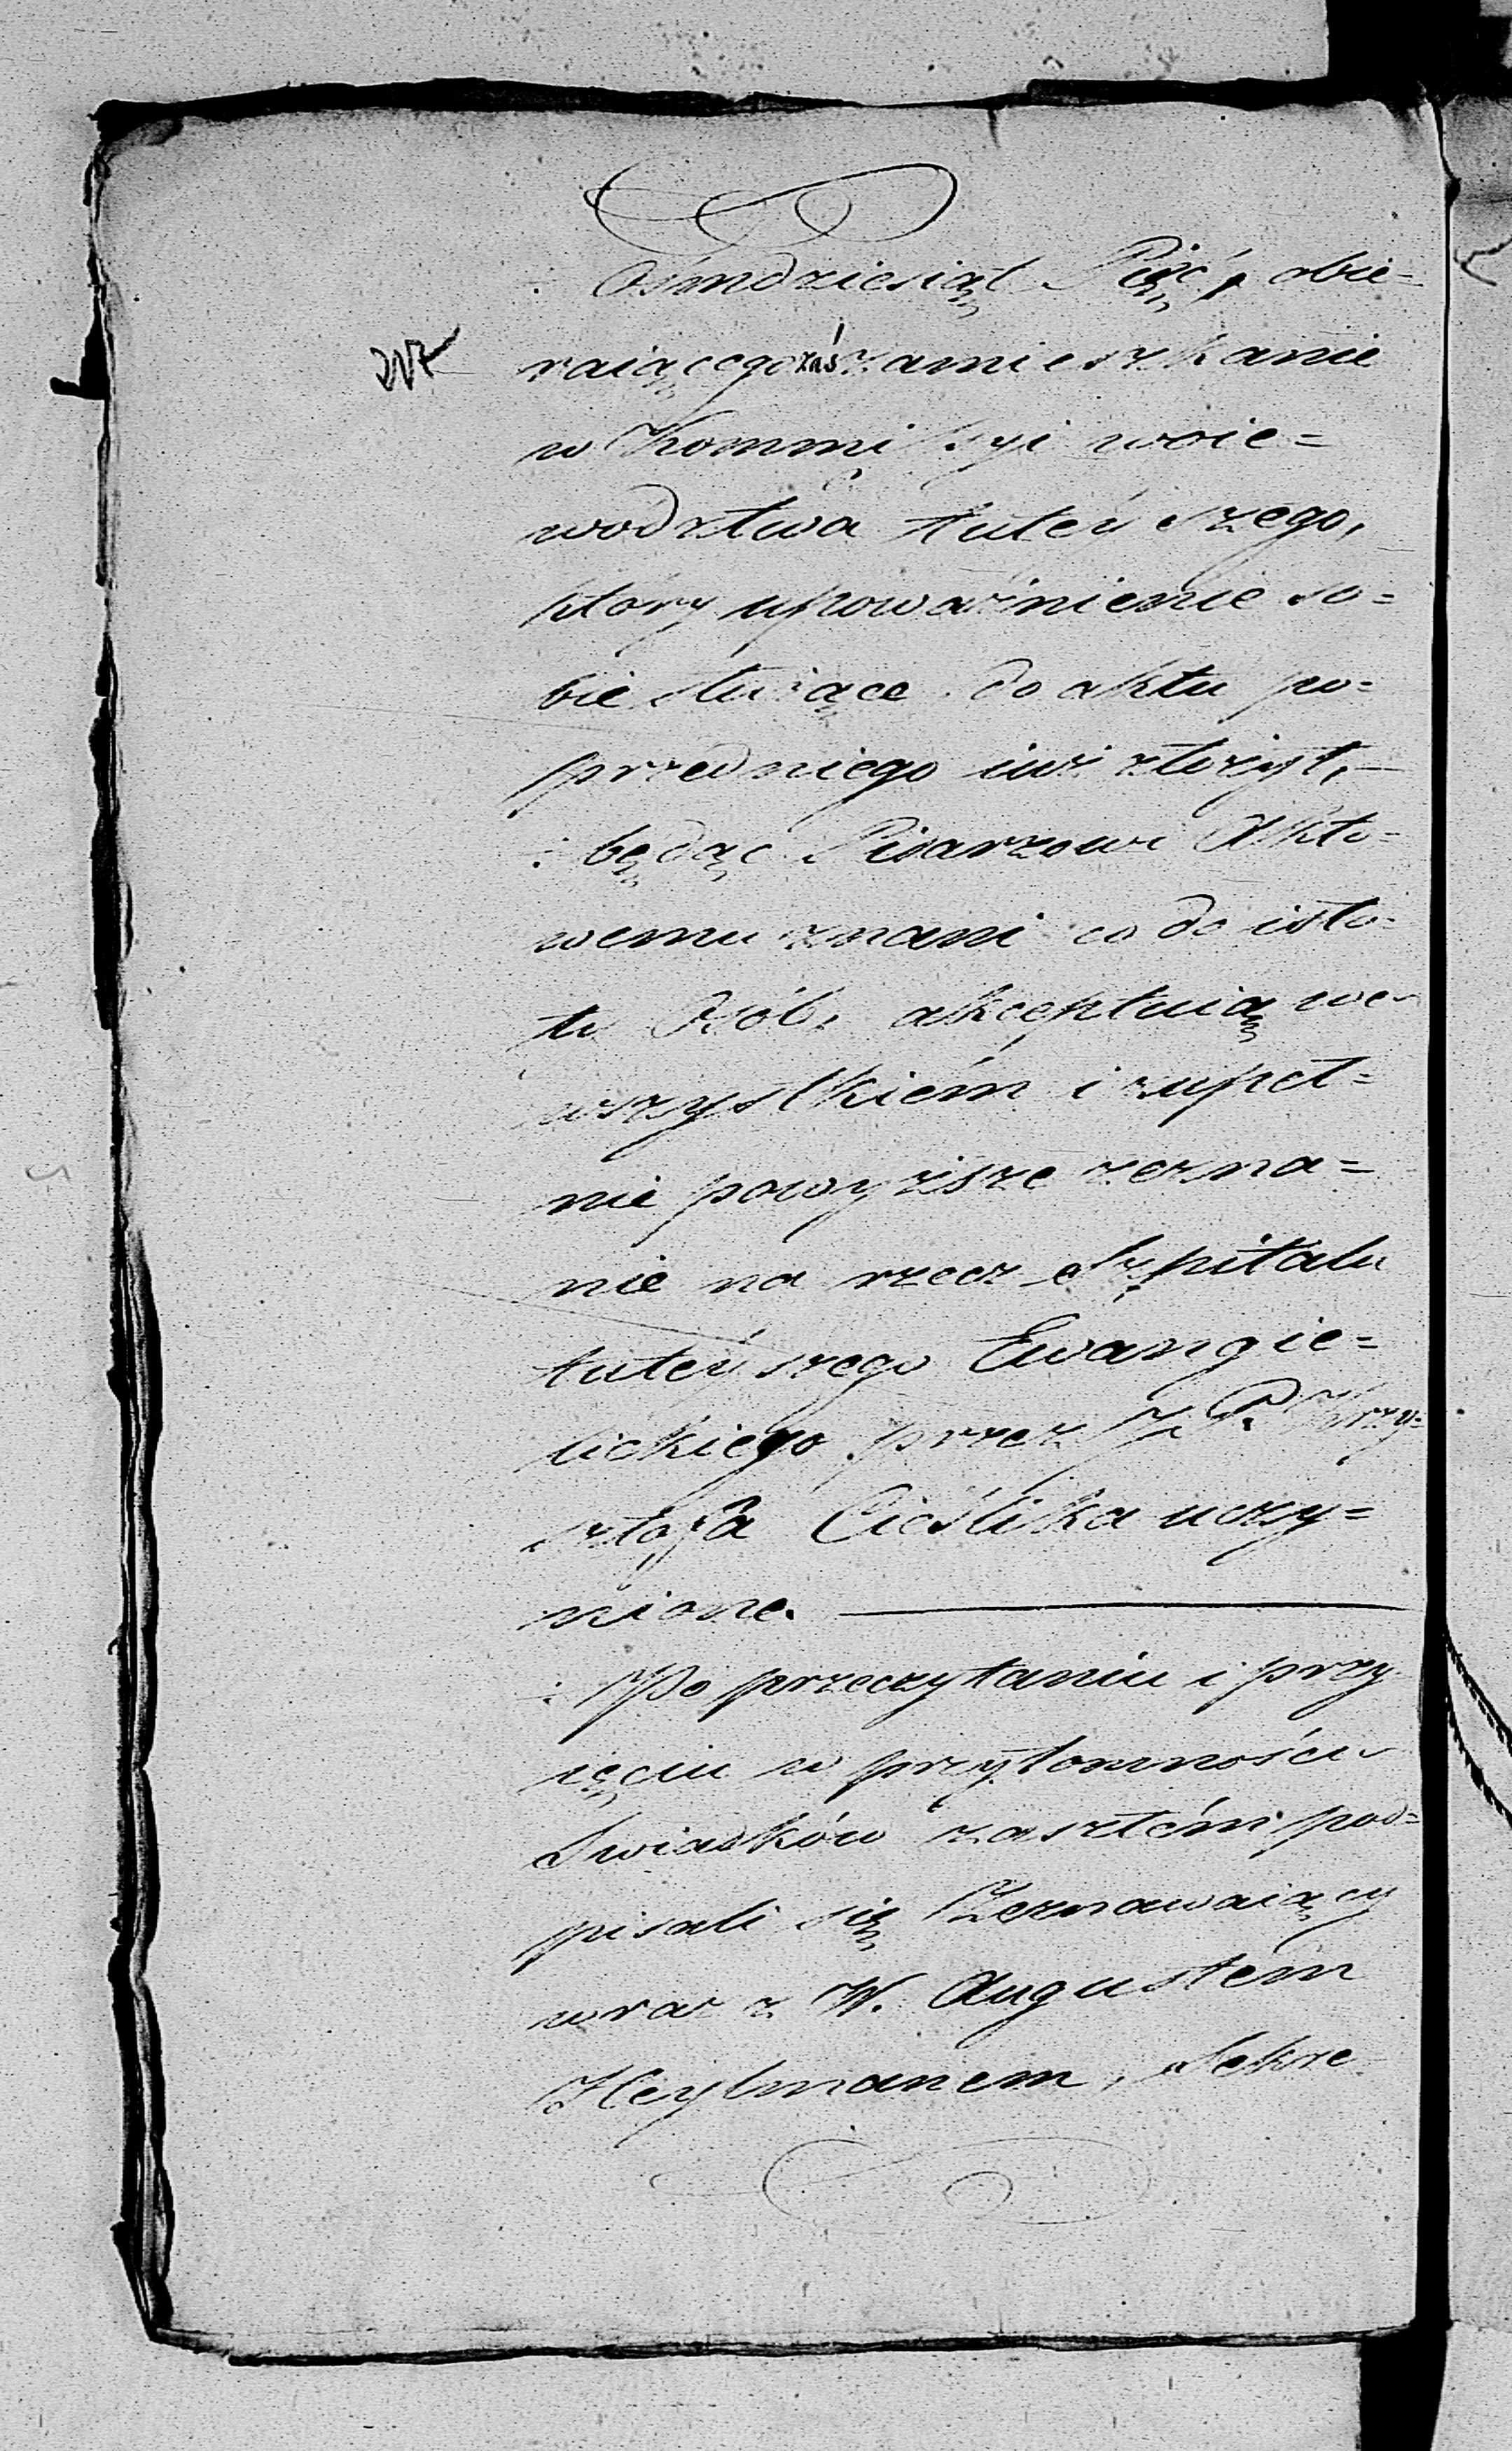 Ośmdziesiąt Pięć, obie-
raiącego zaś zamieszkanie
w Kommissyi woie=
wodztwa tuteyszego,
który upoważnienie so=
bie służące do aktu po=
przedniego iuż złożył,—
będąc Pisarzowi Akto=
wemu znani co do isto=
ty Osób, akceptuią we
wszystkiém i zupeł=
nie powyższe zezna=
nie na rzecz Szpitalu
tuteyszego Ewangie=
lickiego przez J. P. Krzy=
sztofa Cieślika uczy=
nione.
Po przeczytaniu i przy
ięciu w przytomności
Swiadków zaszłém pod=
pisali się Zeznawaiący
wraz z W. Augustem
Heylmanem, Sekre